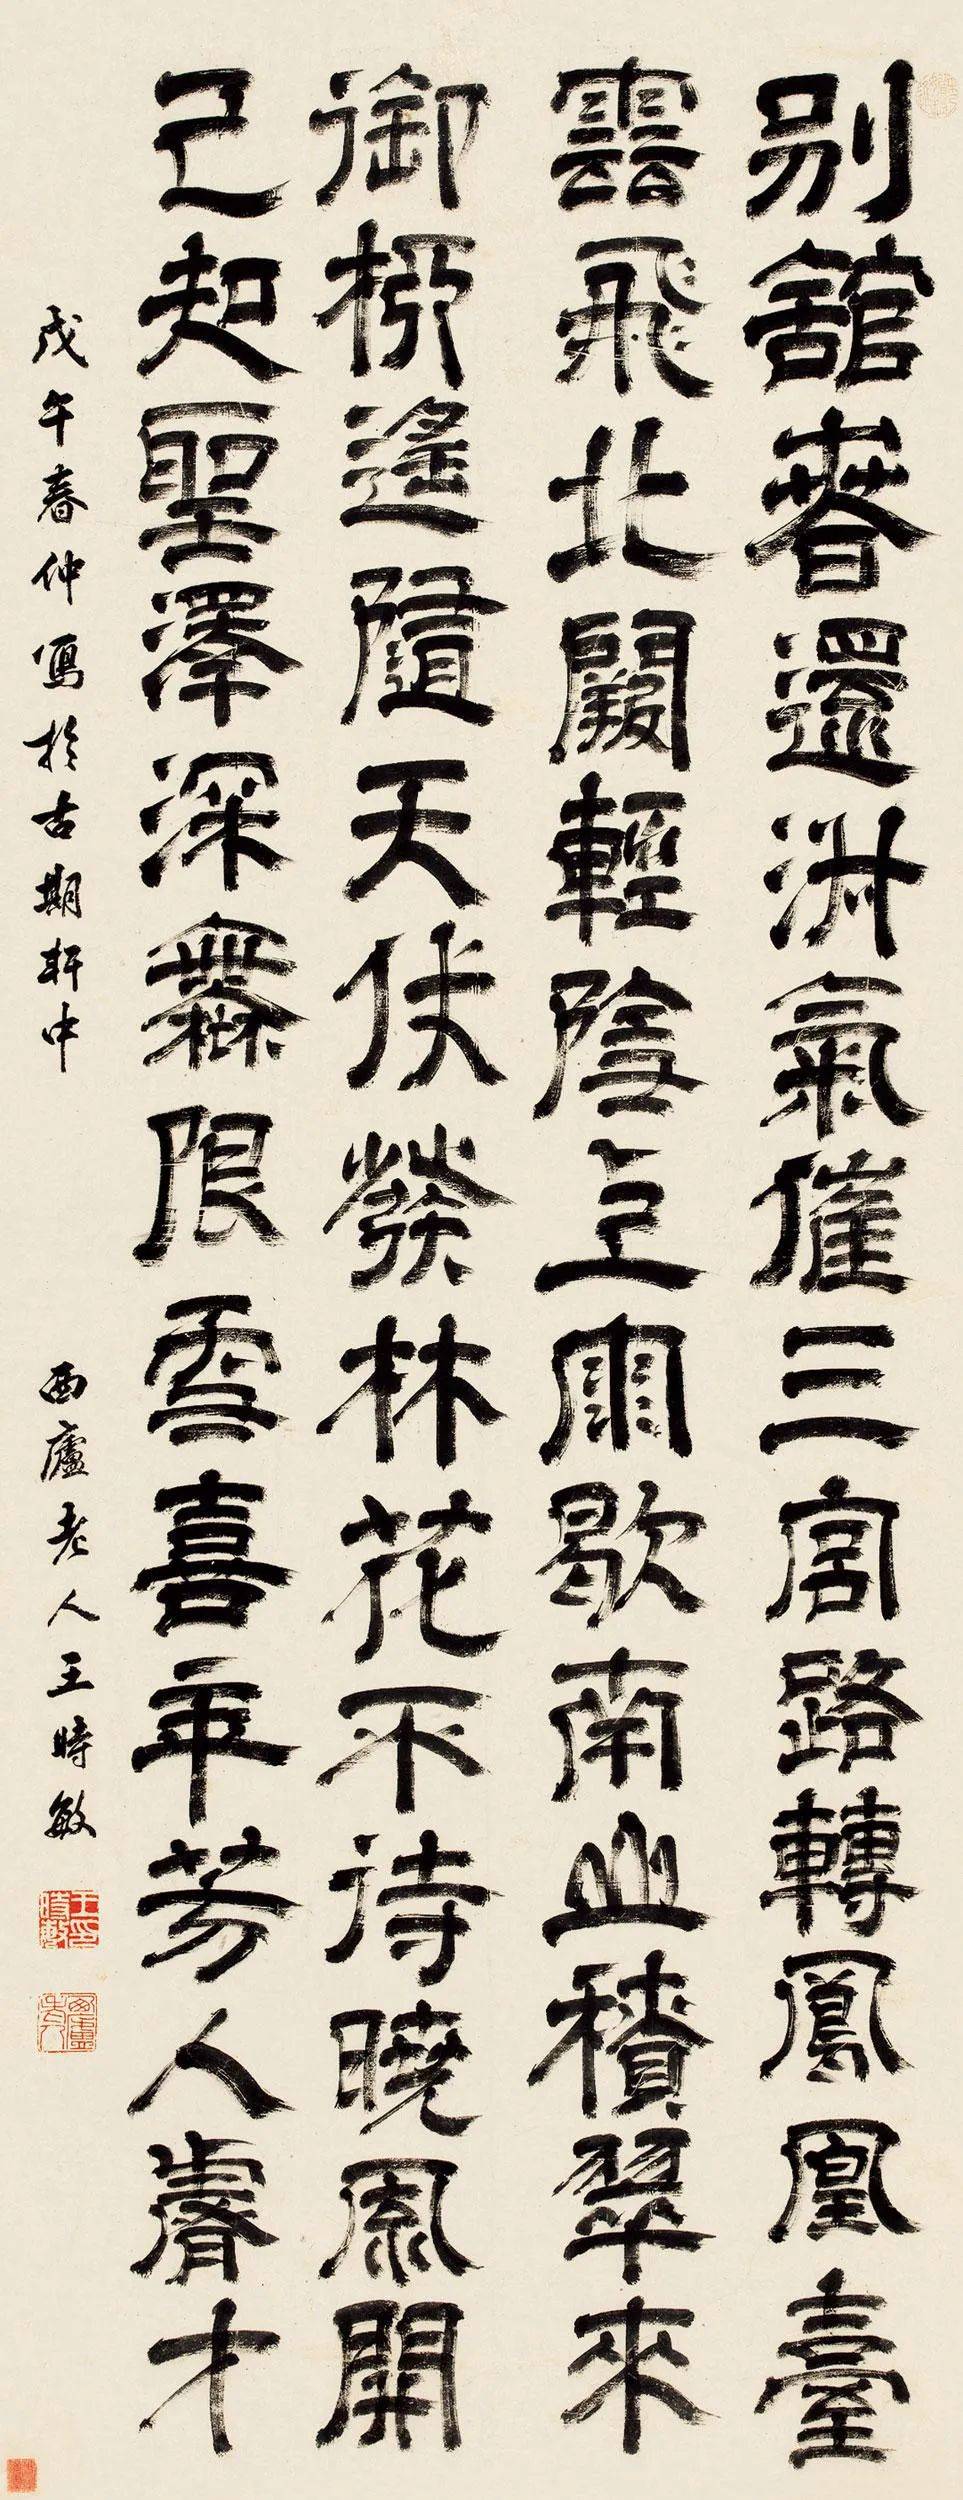 別舘春還淑氣催三宮路轉鳳凰臺
雲飛北闕輕陰雨歇南山積翠來
御柳遙隨天仗發林花不待曉風開
已知聖澤深無限雪喜年芳入睿才
戊午春仲寫於古期軒中 西廬老人王時敏
王時敏印
西廬老人